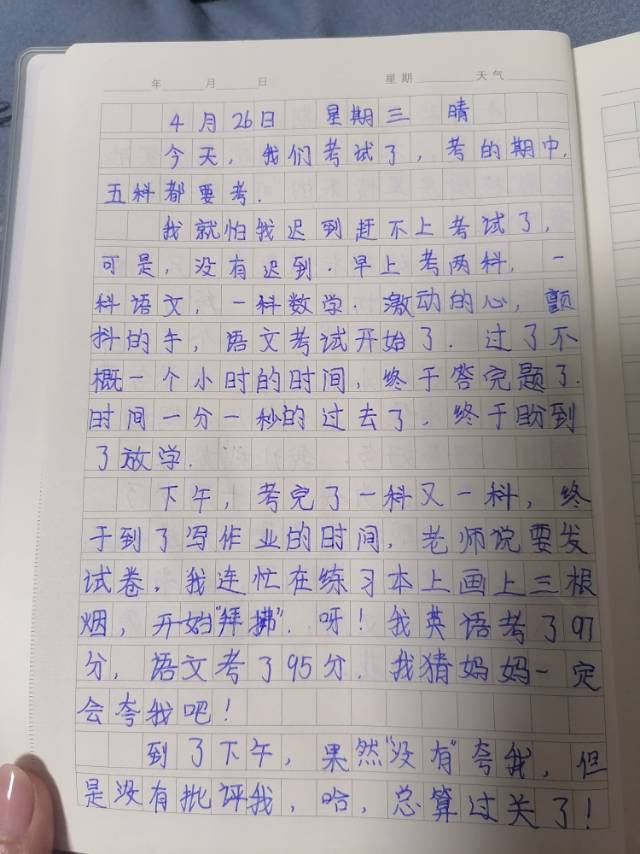 年 月 日 星期 天气
4月26日 星期三 晴
今天，我们考试了，考的期中，
五科都要考．
我就怕我迟到赶不上考试了，
可是，没有迟到．早上考两科，一
科语文，一科数学．激动的心，颤
抖的手，语文考试开始了．过了不
概一个小时的时间，终于答完题了．
时间一分一秒的过去了．终于盼到
了放学．
下午，考完了一科又一科，终
于到了写作业的时间，老师说要发
试卷．我连忙在练习本上画上三根
烟，开始"拜拂"．呀！我英语考了97
分，语文考了95分．我猜妈妈一定
会夸我吧！
到了下午，果然"没有"夸我，但
是没有批评我，哈，总算过关了！